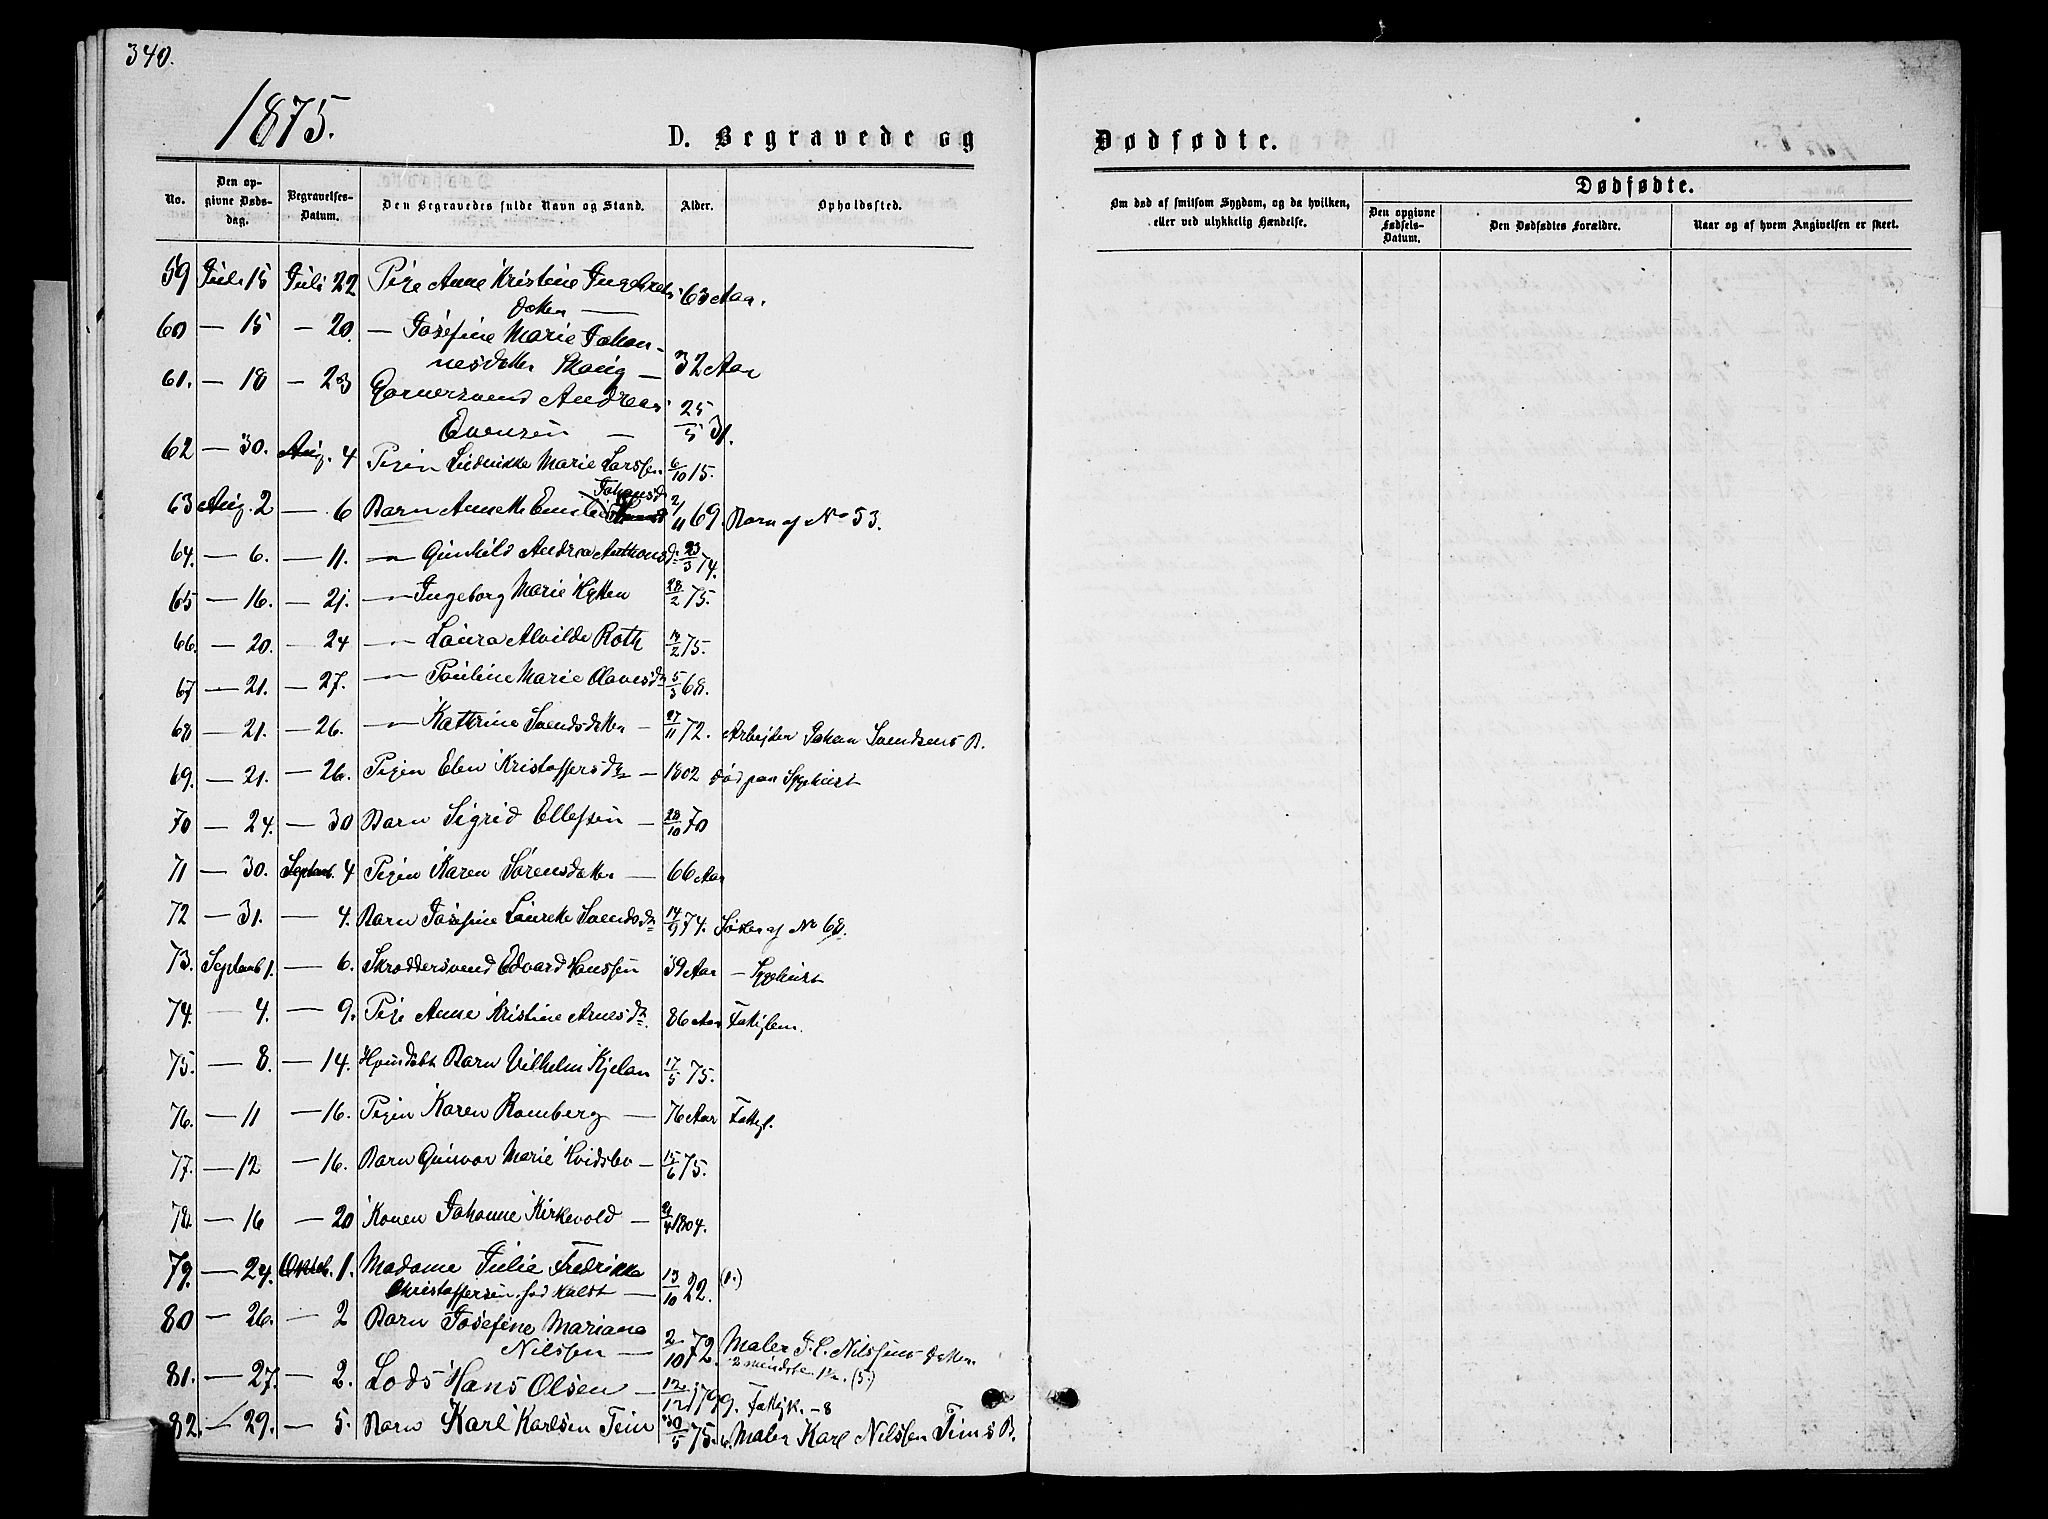 340.
1875.
D. Begravede og
Dødfødte.
No.
Den op-
givne Døds-
dag.
Begravelses-
Datum.
Den Begravedes fulde Navn og Stand.
Alder.
Opholdssted.
Om død af smitsom Sygdom, og da hvilken,
eller ved ulykkelig Hændelse.
Dødfødte.
Den opgivne
Fødsels-
Datum.
Den Dødfødtes Forældre.
Naar og af hvem Angivelsen er skeet.
59 Juli 15 Juli 22 Pige Anne Kristine Ingebrets- 63 Aar.
datter —
60 — 15 — 20. — Josefine Marie Johan-
nesdatter Skaug — 32 Aar
61. — 18 — 23 Garversvend Andreas 25/5 31.
Evensen —
62 — 30. Aug. 4 Pigen Fredrikke Marie Larssen 6/10 15.
63 Aug. 2 — 6 Barn Annette Emilie Johansd 2/11 69. Barn af No 53.
64. — 6. — 11. — Gunhild Andrea Anthonsd. 23/3 74.
65 — 16. — 21. — Ingeborg Marie Hytten 28/2 75.
66. — 20. — 24 — Laura Alvilde Roth 14/2 75.
67 — 21. — 27. — Pauline Marie Olavesdr 5/3 68.
68 — 21. — 26. — Kathrine Svendsdatter — 27/11 72. Arbejder Johan Svendsens B.
69. — 21. — 26. Pigen Elen Kristoffersdr — 1802 død paa Sygehuset
70 — 24. — 30 Barn Sigrid Ellefsen — 28/10 70
71 — 30. Septemb. 4 Pigen Karen Sørensdatter — 66 Aar
72 — 31. — 4. Barn Josefine Laurette Svendsdr 14/9 74. Søster af No 68.
73. Septemb 1. — 6. Skræddersvend Edvard Hanssen 39 Aar — Sygehuset
74. — 4. — 9. Pige Anne Kristine Arnesdr. 86 Aar Fattiglem.
75. — 8. — 14. Hjemdøbt Barn Vilhelm Kjelan 17/5 75.
76. — 11 — 16. Pigen Karen Romberg — 76 Aar Fattigl.
77. — 12 — 16. Barn Gunvor Marie Hvidsten — 15/6 75.
78. — 16 — 20 Konen Johanne Kirkevold — /4 1804.
79. — 24. Oktob. 1. Madame Julie Fredrikke
Christoffersen, fød Kaldt — 13/10 22. (1.)
80 — 26. — 2 Barn Josefine Mariane
Nilssen — 2/10 72. Maler J. C. Nilssens Datter.
81. — 27. — 2. Lods Hans Olsen — 12/12 1799. Fattigk. — 8
82. — 29. — 5. Barn Karl Karlsen Fein 30/5 75. Maler Karl Nilssen Feins B.